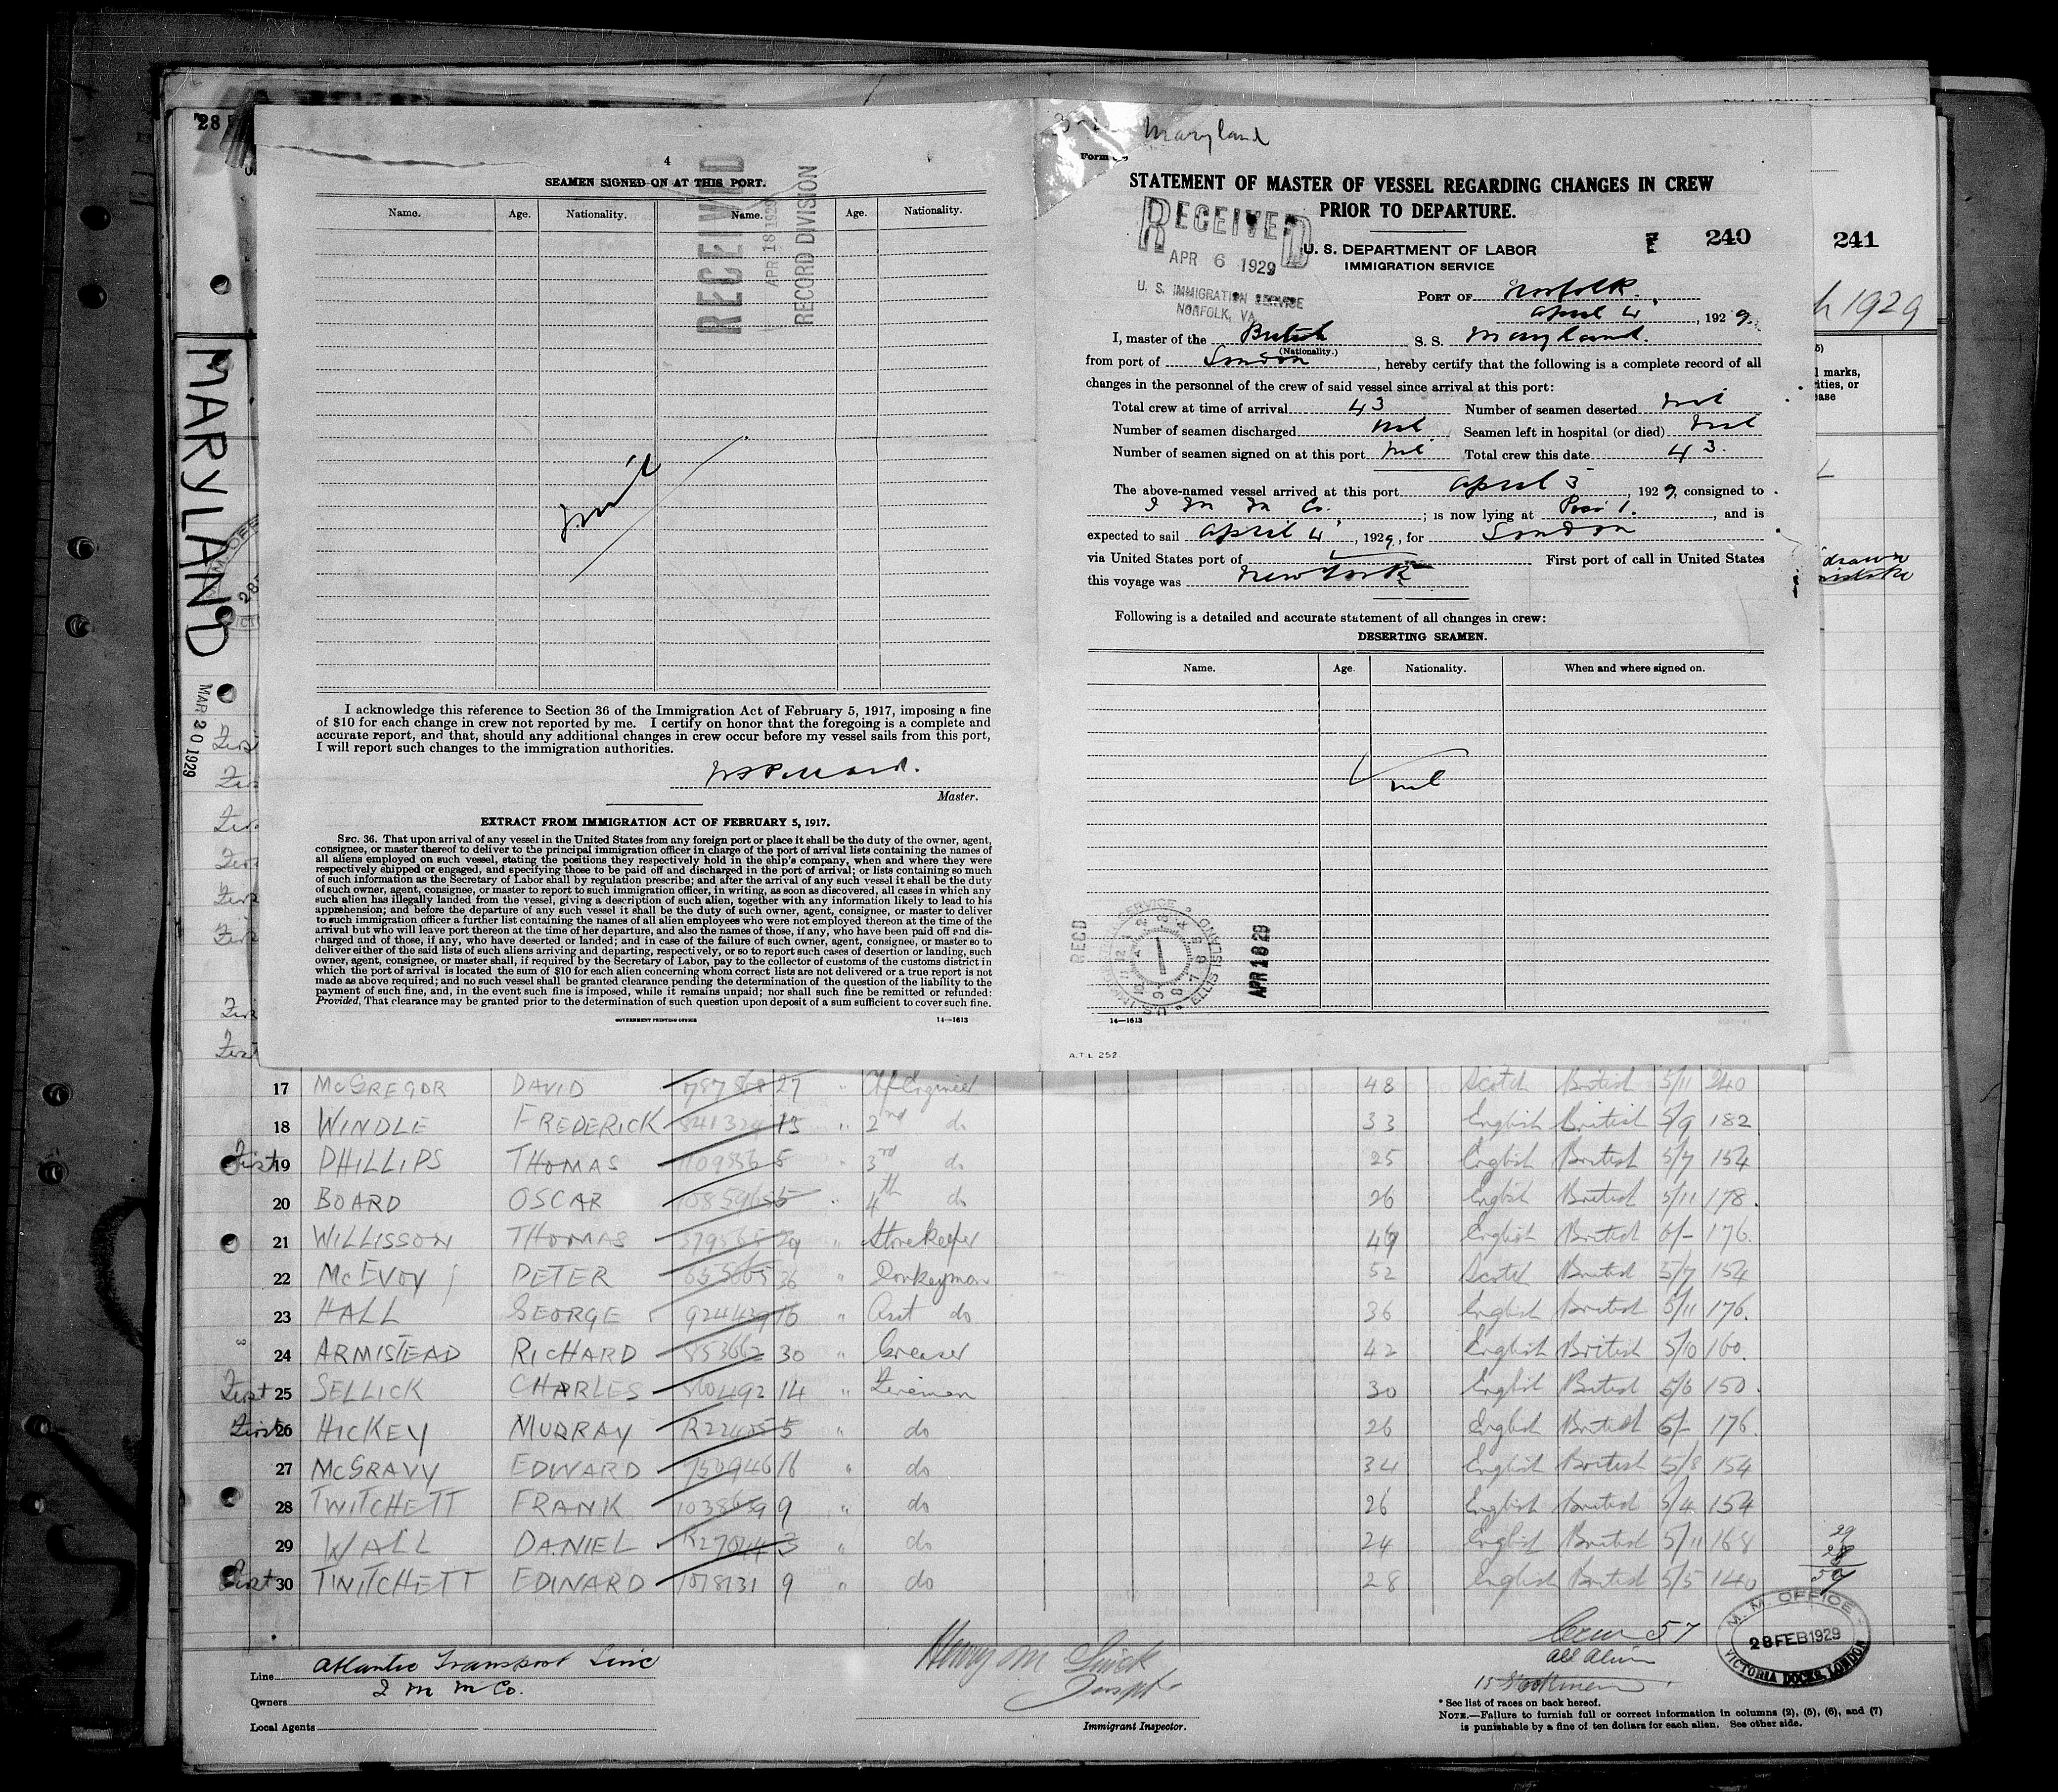 28
MARYLAND
MAR 20 1929
4
SEAMEN SIGNED ON AT THIS PORT.
Name. Age. Nationality. Name. Age. Nationality.
RECEIVED
APR 18 1929
RECORD DIVISION
nil
I acknowledge this reference to Section 36 of the Immigration Act of February 5, 1917, imposing a fine
of $10 for each change in crew not reported by me. I certify on honor that the foregoing is a complete and
accurate report, and that, should any additional changes in crew occur before my vessel sails from this port,
I will report such changes to the immigration authorities.
Master.
EXTRACT FROM IMMIGRATION ACT OF FEBRUARY 5, 1917.
SEC. 36. That upon arrival of any vessel in the United States from any foreign port or place it shall be the duty of the owner, agent,
consignee, or master thereof to deliver to the principal immigration officer in charge of the port of arrival lists containing the names of
all aliens employed on such vessel, stating the positions they respectively hold in the ship's company, when and where they were
respectively shipped or engaged, and specifying those to be paid off and discharged in the port of arrival; or lists containing so much
of such information as the Secretary of Labor shall by regulation prescribe; and after the arrival of any such vessel it shall be the duty
of such owner, agent, consignee, or master to report to such immigration officer, in writing, as soon as discovered, all cases in which any
such alien has illegally landed from the vessel, giving a description of such alien, together with any information likely to lead to his
apprehension; and before the departure of any such vessel it shall be the duty of such owner, agent, consignee, or master to deliver
to such immigration officer a further list containing the names of all alien employees who were not employed thereon at the time of the
arrival but who will leave port thereon at the time of her departure, and also the names of those, if any, who have been paid off and dis-
charged and of those, if any, who have deserted or landed; and in case of the failure of such owner, agent, consignee, or master so to
deliver either of the said lists of such aliens arriving and departing, respectively, or so to report such cases of desertion or landing, such
owner, agent, consignee, or master shall, if required by the Secretary of Labor, pay to the collector of customs of the customs district in
which the port of arrival is located the sum of $10 for each alien concerning whom correct lists are not delivered or a true report is not
made as above required; and no such vessel shall be granted clearance pending the determination of the question of the liability to the
payment of such fine, and, in the event such fine is imposed, while it remains unpaid; nor shall such fine be remitted or refunded:
Provided, That clearance may be granted prior to the determination of such question upon deposit of a sum sufficient to cover such fine.
GOVERNMENT PRINTING OFFICE 14—1613
Maryland
Form
STATEMENT OF MASTER OF VESSEL REGARDING CHANGES IN CREW
PRIOR TO DEPARTURE.
RECEIVED
APR 6 1929
U. S. IMMIGRATION SERVICE
NORFOLK, VA
U. S. DEPARTMENT OF LABOR
IMMIGRATION SERVICE
240
241
PORT OF Norfolk.
April 4, 1929.
h 1929
I, master of the British S. S. Maryland.
(Nationality.)
from port of London, hereby certify that the following is a complete record of all
changes in the personnel of the crew of said vessel since arrival at this port:
Total crew at time of arrival 43 Number of seamen deserted nil
Number of seamen discharged nil Seamen left in hospital (or died) nil
Number of seamen signed on at this port nil Total crew this date 43.
The above-named vessel arrived at this port April 3, 1929, consigned to
I M M Co.; is now lying at Pier 1., and is
expected to sail April 4, 1929, for London
via United States port of First port of call in United States
this voyage was New York
Following is a detailed and accurate statement of all changes in crew:
DESERTING SEAMEN.
Name. Age. Nationality. When and where signed on.
nil
RECD
ELLIS ISLAND
APR 18 29
14—1613
A.T.L. 252
17 McGREGOR DAVID 787868 27 " Chf Engineer 48 Scotch British 5/11 240
18 WINDLE FREDERICK 841324 15 " 2nd do 33 English British 5/9 182
First 19 PHILLIPS THOMAS 1109836 5 " 3rd do 25 English British 5/7 154
20 BOARD OSCAR 5 " 4th do 26 English British 5/11 178.
21 WILLISSON THOMAS 29 " Storekeeper English British 6/- 176.
22 McEVOY PETER 36 " Donkeyman 52 Scotch British 5/7 154
23 HALL GEORGE 924439 16 " Asst do 36 English British 5/11 176.
24 ARMISTEAD RICHARD 853662 30 " Greaser 42 English British 5/10 160.
First 25 SELLICK CHARLES 860492 14 " Fireman 30 English British 5/6 150.
First 26 HICKEY MURRAY 5 " do 26 English British 6/- 176.
27 McGRAVY EDWARD 750946 16 " do 34 English British 5/8 154
28 TWITCHETT FRANK 9 " do 26 English British 5/4 154
29 WALL DANIEL 3 " do 24 English British 5/11 168
First 30 TWITCHETT EDWARD 1078131 9 " do 28 English British 5/5 140
Crew 57
All Alien
15
M. M. OFFICE
28 FEB 1929
VICTORIA DOCKS, LONDON
Line Atlantic Transport Line
Owners I M M Co.
Local Agents
Immigrant Inspector.
* See list of races on back hereof.
NOTE.—Failure to furnish full or correct information in columns (2), (5), (6), and (7)
is punishable by a fine of ten dollars for each alien. See other side.